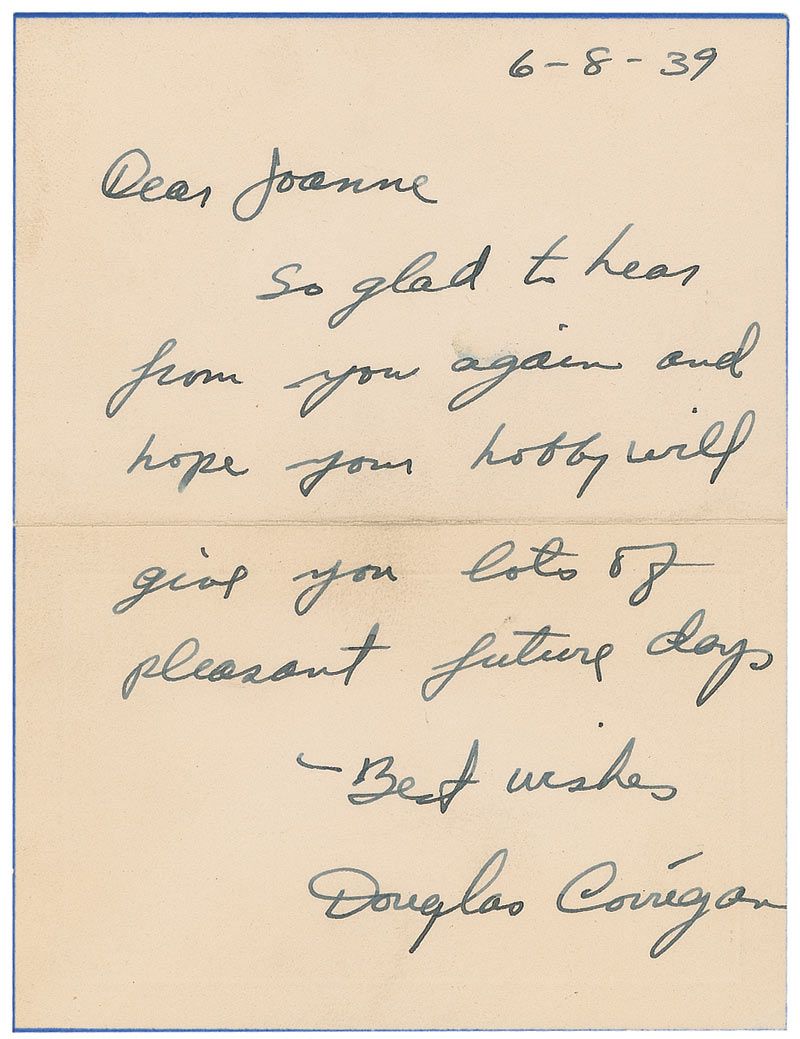 6-8-39
Dear Joanne
So glad to hear
from you again and
hope your hobby will
give you lots of
pleasant future days
- Best wishes
Douglas Corrigan